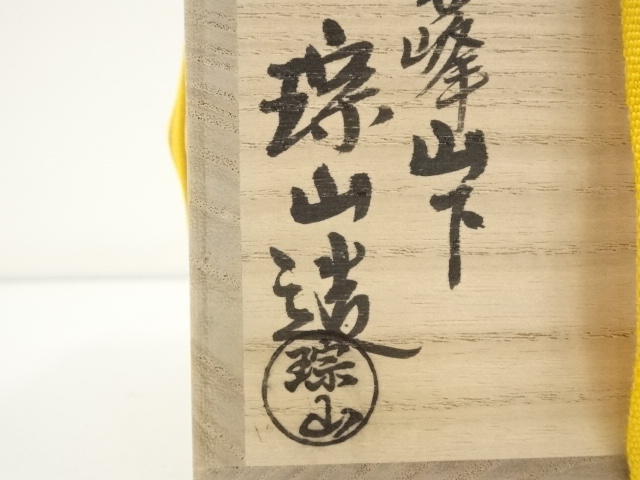 峰山下
琮山造
琮山